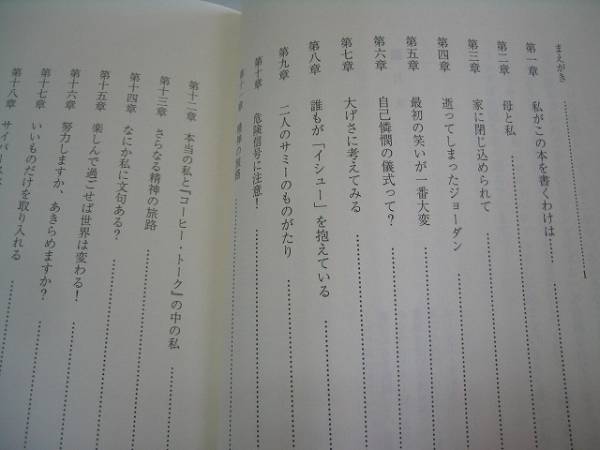 まえがき……………………1
第一章 私がこの本を書くわけは……………………
第二章 母と私……………………
第三章 家に閉じ込められて……………………
第四章 逝ってしまったジョーダン……………………
第五章 最初の笑いが一番大変……………………
第六章 自己憐憫の儀式って?……………………
第七章 大げさに考えてみる……………………
第八章 誰もが「イシュー」を抱えている……………………
第九章 二人のサミーのものがたり……………………
第十章 危険信号に注意!……………………
第十一章 精神の旅路……………………
第十二章 本当の私と『コーヒー・トーク』の中の私……………………
第十三章 さらなる精神の旅路……………………
第十四章 なにか私に文句ある?……………………
第十五章 楽しんで過ごせば世界は変わる!……………………
第十六章 努力しますか、あきらめますか?……………………
第十七章 いいものだけを取り入れる……………………
第十八章 サイバー